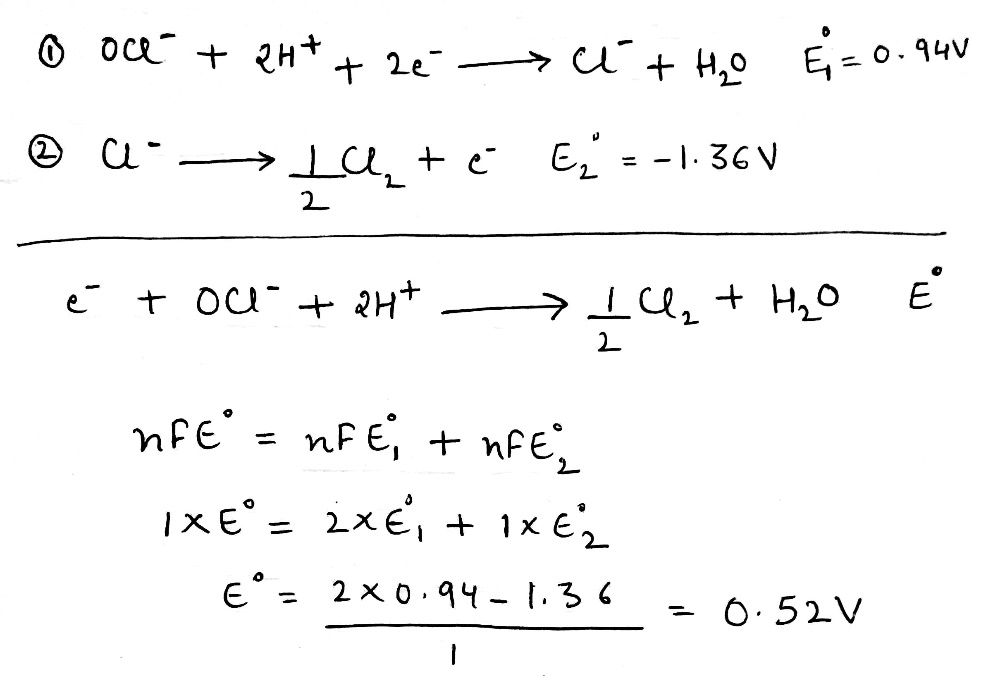 ① OCl⁻ + 2H⁺ + 2e⁻ ⟶ Cl⁻ + H₂O E₁° = 0.94V
② Cl⁻ ⟶ 1/2 Cl₂ + e⁻ E₂° = -1.36V
e⁻ + OCl⁻ + 2H⁺ ⟶ 1/2 Cl₂ + H₂O E°
nFE° = nFE₁° + nFE₂°
1×E° = 2×E₁° + 1×E₂°
E° = (2×0.94 - 1.36)/1 = 0.52V